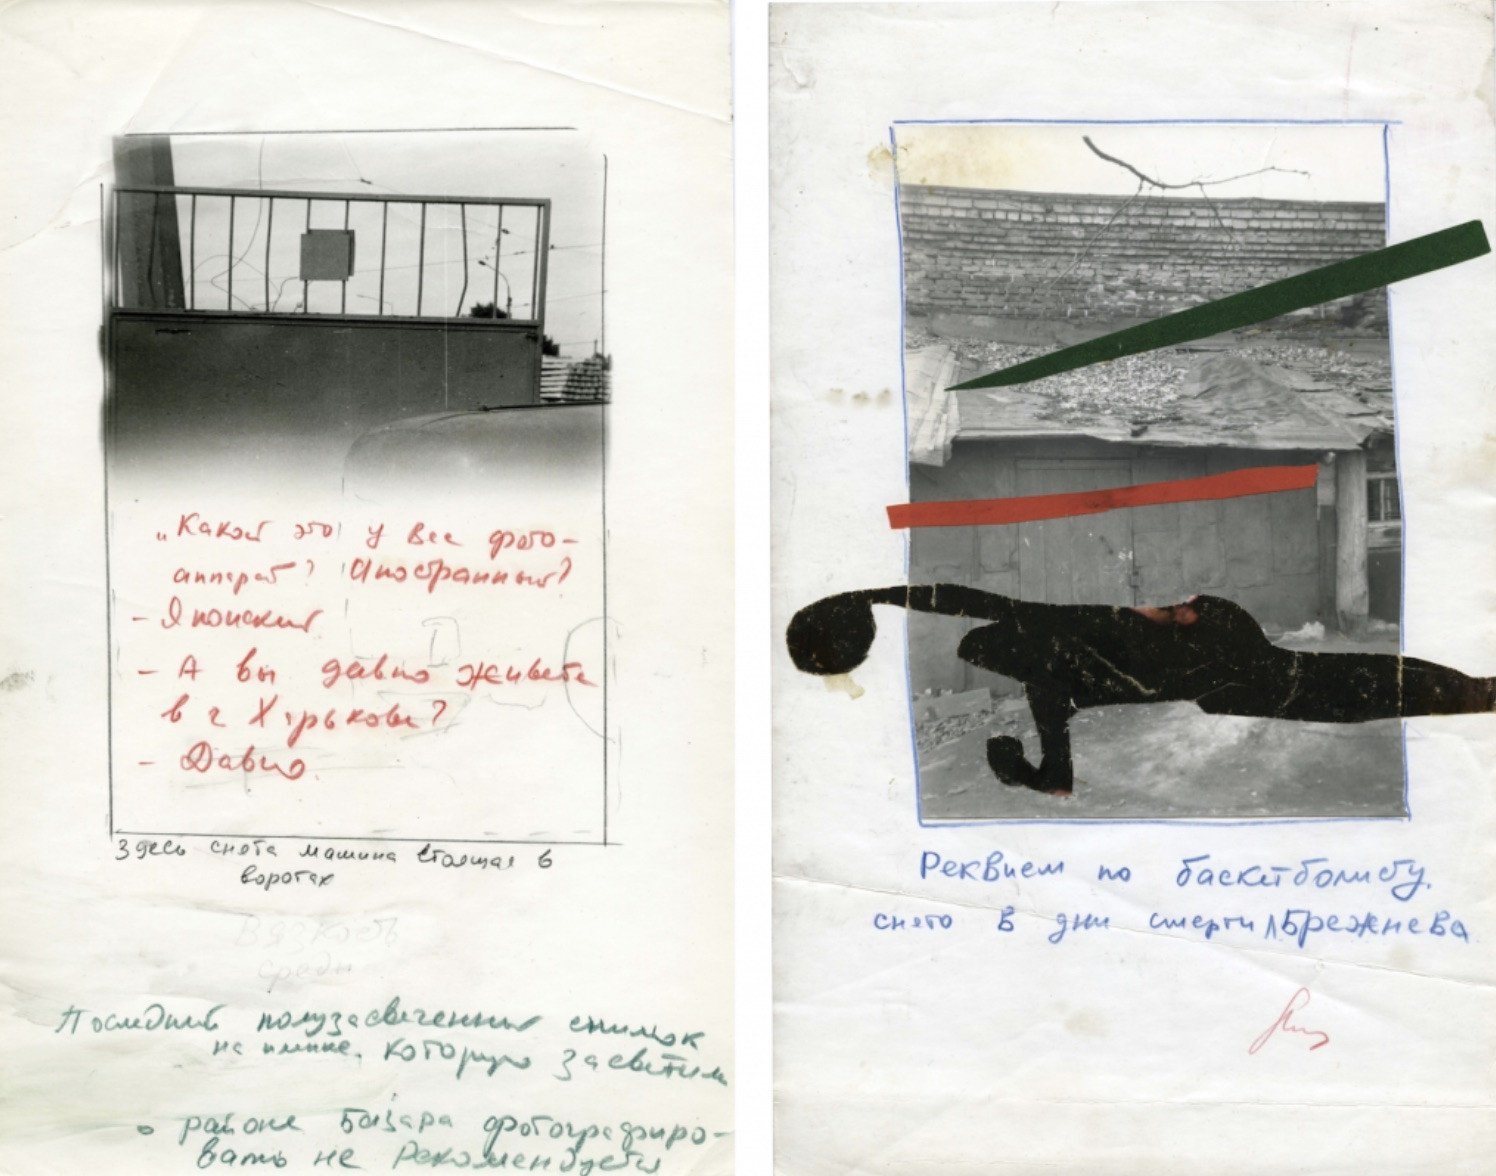 „Какой это у вас фото-
аппарат? Иностранный?
- Японский
- А вы давно живете
в г Харькове?
- Давно.
Здесь снята машина стоящая в
воротах
Вязкость
Последний полузасвеченный снимок
на пленке, которую засветили
в районе Базара фотографиро-
вать не рекомендуется
Реквием по баскетболисту.
снято в дни смерти Л Брежнева